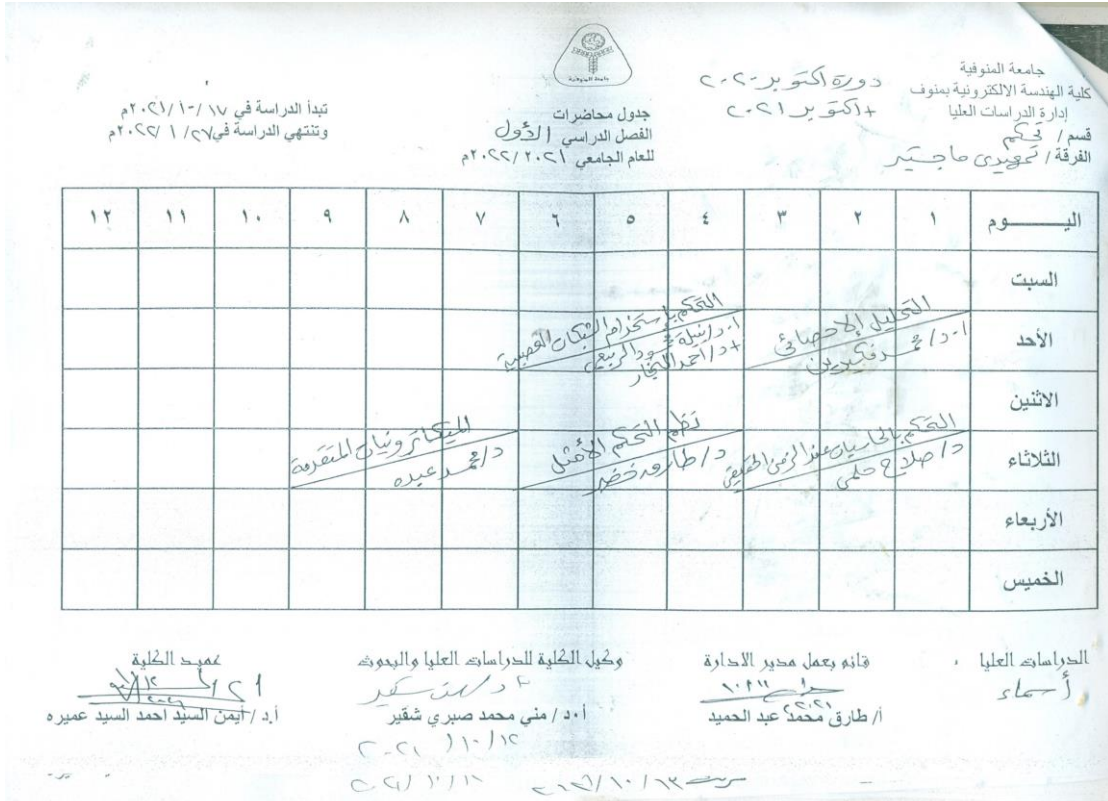 جامعة المنوفية
جامعة المنوفية
كلية الهندسة الالكترونية بمنوف
إدارة الدراسات العليا
قسم / تحكم
الفرقة / تمهيدى ماجستير
دورة اكتوبر ٢٠٢٠
+ اكتوبر ٢٠٢١
جدول محاضرات
الفصل الدراسي الأول
للعام الجامعي ٢٠٢١ / ٢٠٢٢م
تبدأ الدراسة في ١٧ / ١٠ / ٢٠٢١م
وتنتهي الدراسة في ٢٧ / ١ / ٢٠٢٢م
اليـــــوم ١ ٢ ٣ ٤ ٥ ٦ ٧ ٨ ٩ ١٠ ١١ ١٢
السبت
الأحد
التحليل الإحصائى
أ.د/ محمد
التحكم بإستخدام الشبكات العصبية
أ.د/ نبيلة محمود الربيعى
+ د/ أحمد النجار
الاثنين
الثلاثاء
التحكم بالحاسبات عند الزمن الحقيقى
د/ صلاح حلمى
نظم التحكم الأمثل
د/ طارق خضير
الميكاترونيات المتقدمة
د/ محمد عبده
الأربعاء
الخميس
الدراسات العليا
أسماء
قائم بعمل مدير الادارة
أ/ طارق محمد عبد الحميد
وكيل الكلية للدراسات العليا والبحوث
أ.د / مني محمد صبري شقير
٢٠٢١ / ١٠ / ١٢
عميد الكلية
أ.د / أيمن السيد احمد السيد عميره